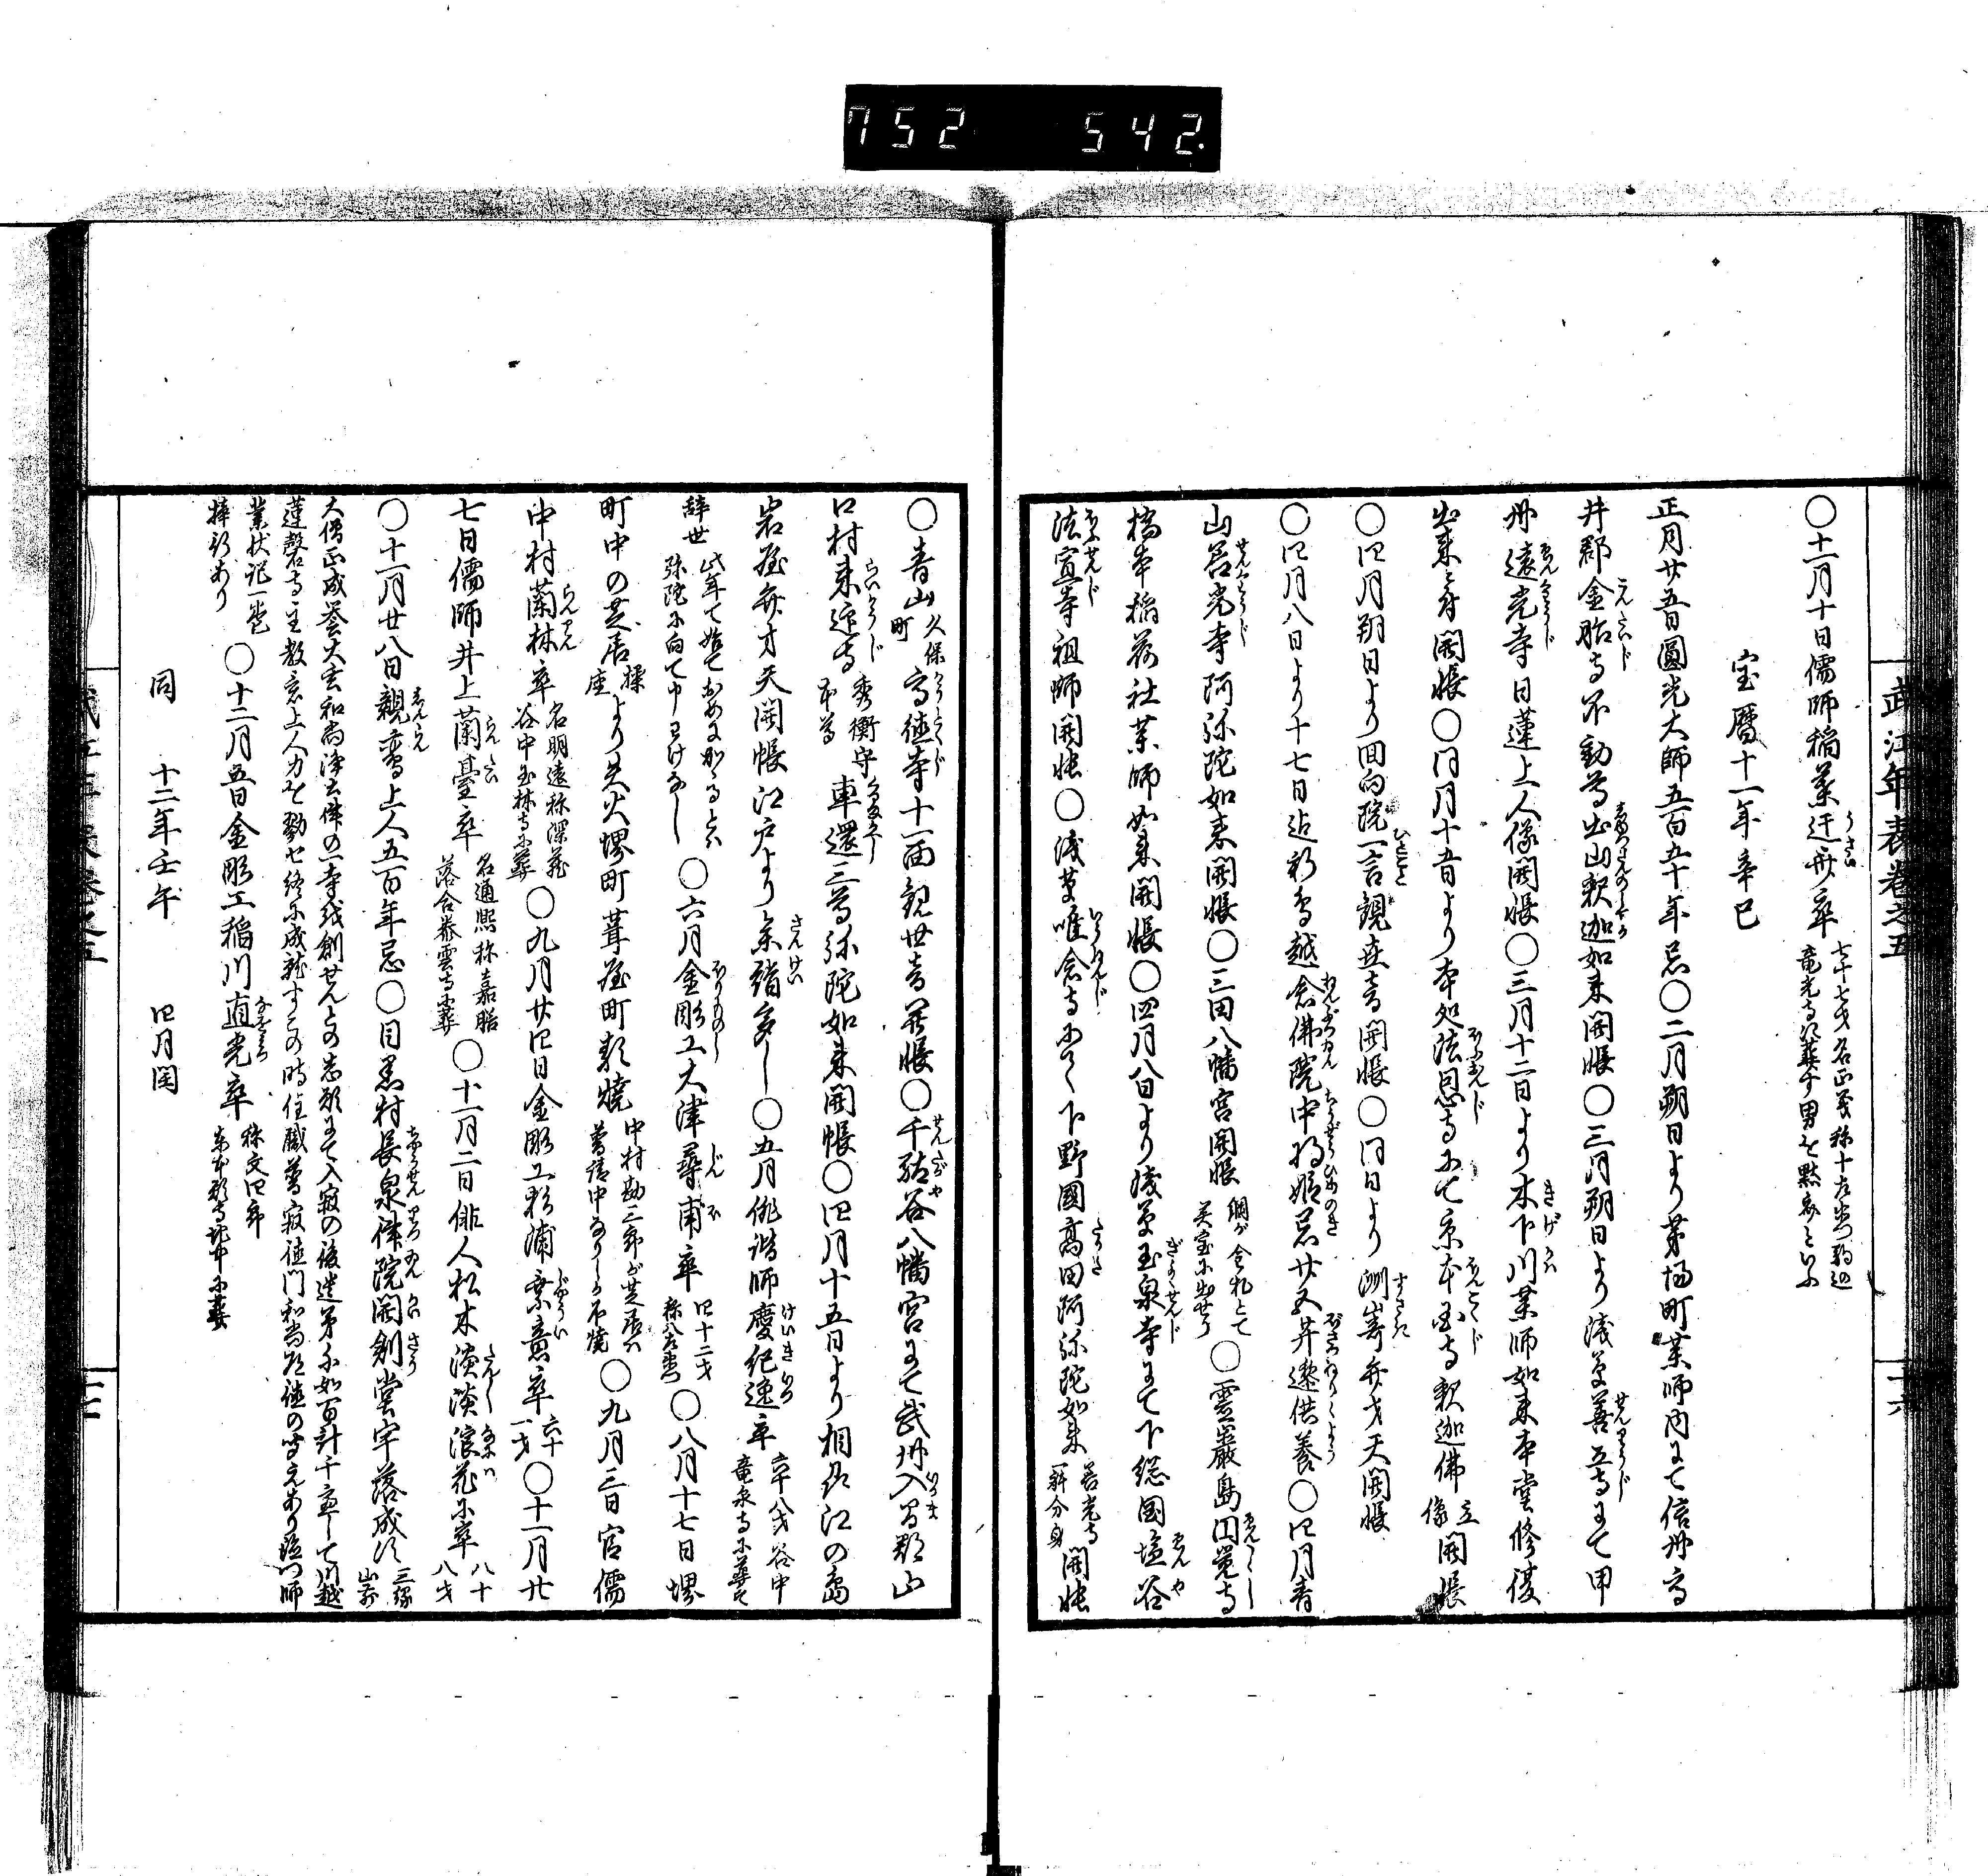 752 542
武江年表巻之五
○十一月十日儒師稲葉迂斎卒 七十七才名正義称十左衛門駒込
竜光寺に葬す男を黙斎といふ
宝暦十一年辛巳
正月廿五日圓光大師五百五十年忌○二月朔日より茅場町薬師内にて信州高
井郡金胎寺不動尊出山釈迦如来開帳○三月朔日より浅草善立寺にて甲
州遠光寺日蓮上人像開帳○三月十二日より木下川薬師如来本堂修復
出来に付開帳○同月十五日より本処法恩寺にて京本国寺釈迦佛立像開帳
○四月朔日より回向院一言観世音開帳○同日より洲崎弁才天開帳
○四月八日より十七日迄新鳥越念佛院中将姫忌廿五菩薩供養○四月青
山善光寺阿弥陀如来開帳○三田八幡宮開帳 綱が金札とて
霊宝に出せり ○霊巌島圓覚寺
橋本稲荷社薬師如来開帳○四月八日より浅草玉泉寺にて下総国塩谷
法宣寺祖師開帳○浅草唯念寺にて下野國高田阿弥陀如来 善光寺
一躰分身 開帳
○青山久保町高徳寺十一面観世音開帳○千駄谷八幡宮にて武州入間郡山
口村来迎寺 秀衡守
本尊 車還三尊弥陀如来開帳○四月十五日より相州江の島
岩屋弁才天開帳江戸より参詣多し○五月俳諧師慶紀逸卒 六十八才谷中
竜泉寺に葬す
辞世 此年て始てお目にかゝるとは
弥陀に向て申わけなし ○六月金彫工大津尋甫卒 四十二才
称八左衛門 ○八月十七日堺
町中の芝居操座より失火堺町葺屋町類焼 中村勘三郎が芝居は
普請中なりしか不焼 ○九月三日官儒
中村蘭林卒 名明遠称深蔵
谷中玉林寺に葬 ○九月廿四日金彫工杉浦乗意卒 六十
一才 ○十一月廿
七日儒師井上蘭臺卒 名通熙称嘉膳
落合泰雲寺葬 ○十一月二日俳人松木淡淡浪花に卒 八十
八才
○十一月廿八日親鸞上人五百年忌○目黒村長泉律院開創堂宇落成す 三縁
山前
大僧正成誉大玄和尚浄土律の一寺を創せんとの志願にて入寂の後遺弟千如百計千慮して川越
蓮馨寺主教意上人力を勠せ終に成就すこの時住職普寂徳門和尚道徳の聞えあり徳門師
業状記一巻
梓行あり ○十二月五日金彫工稲川直光卒 称文四郎
東本願寺地中に葬
同 十二年壬午 四月閏